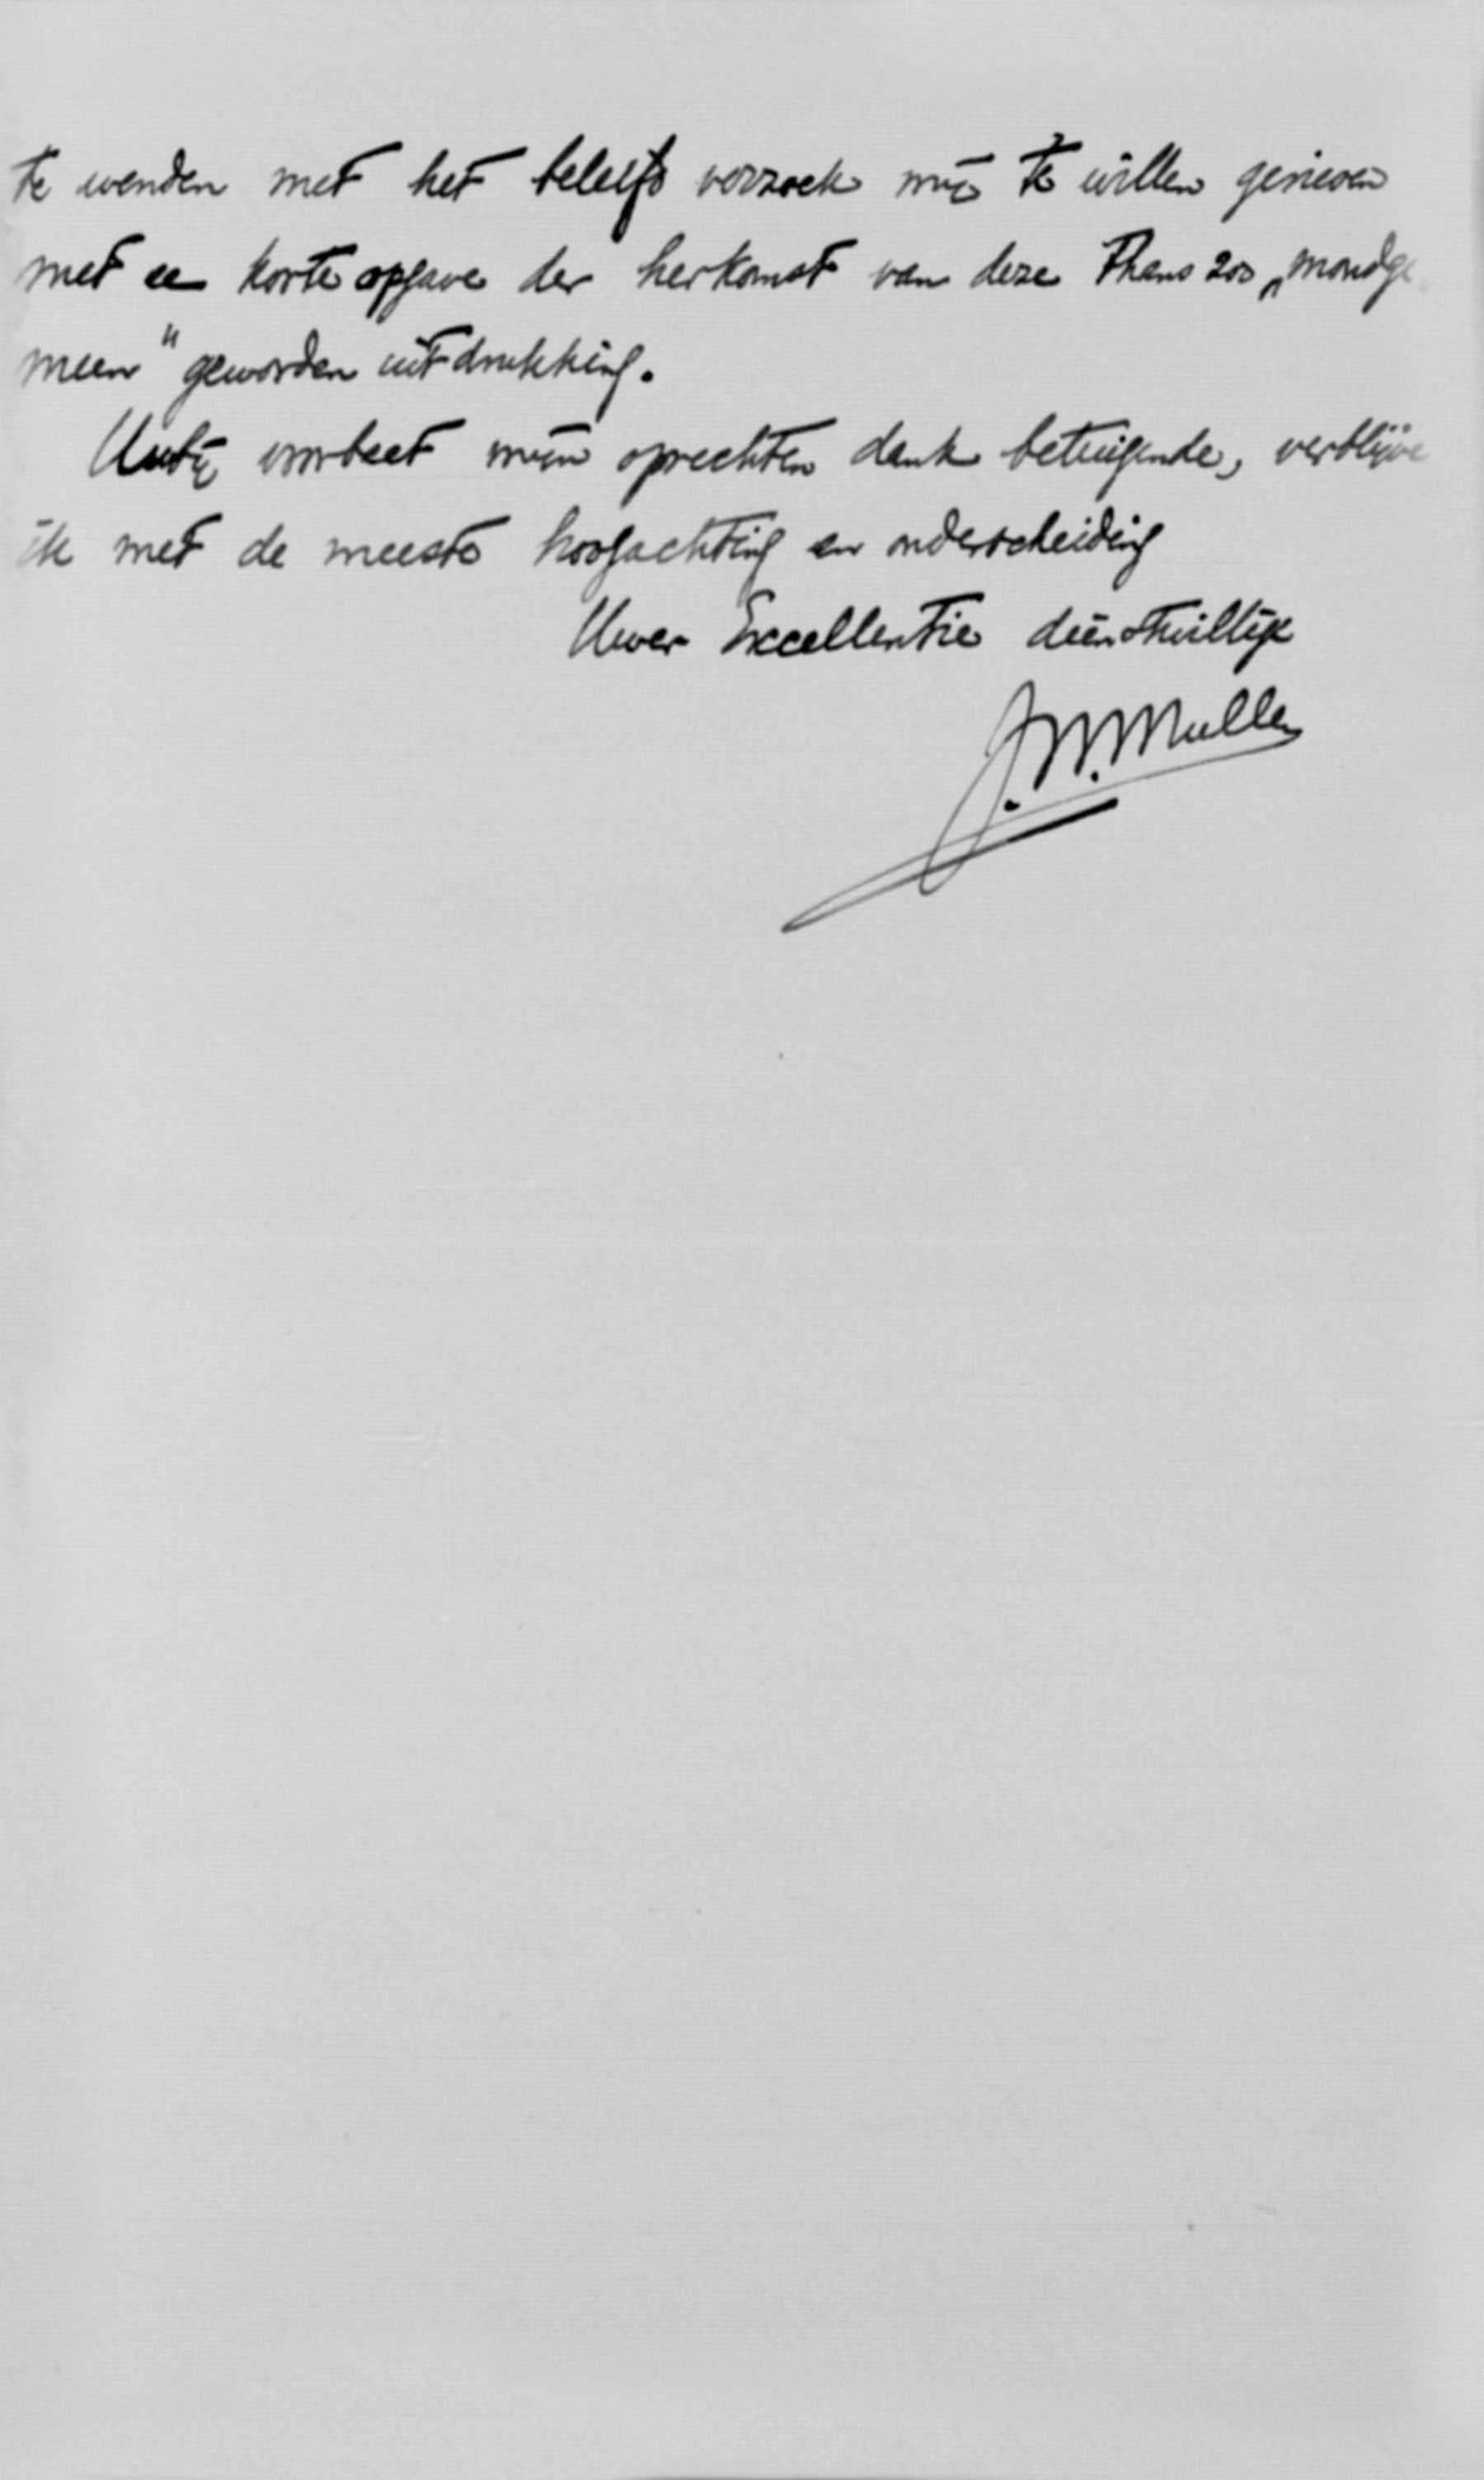 te wenden met het beleefd verzoek mij te willen gerieven
met ee korte opgave der herkomst van deze thans zoo „mondge
meen" geworden uitdrukking.
U bij voorbaat mijn oprechten dank betuigende, verblijve
ik met de meeste hoogachting en onderscheiding
Uwer Excellentie dienstwillige
J.W. Muller